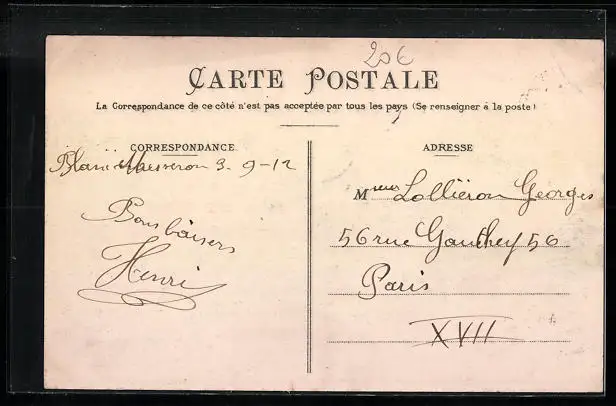 20€
CARTE POSTALE
La Correspondance de ce côté n'est pas acceptée par tous les pays (Se renseigner à la poste)
CORRESPONDANCE
3-9-12
Bons baisers
Henri
ADRESSE
Mr Georges
56 rue Gauthey 56
Paris
XVII